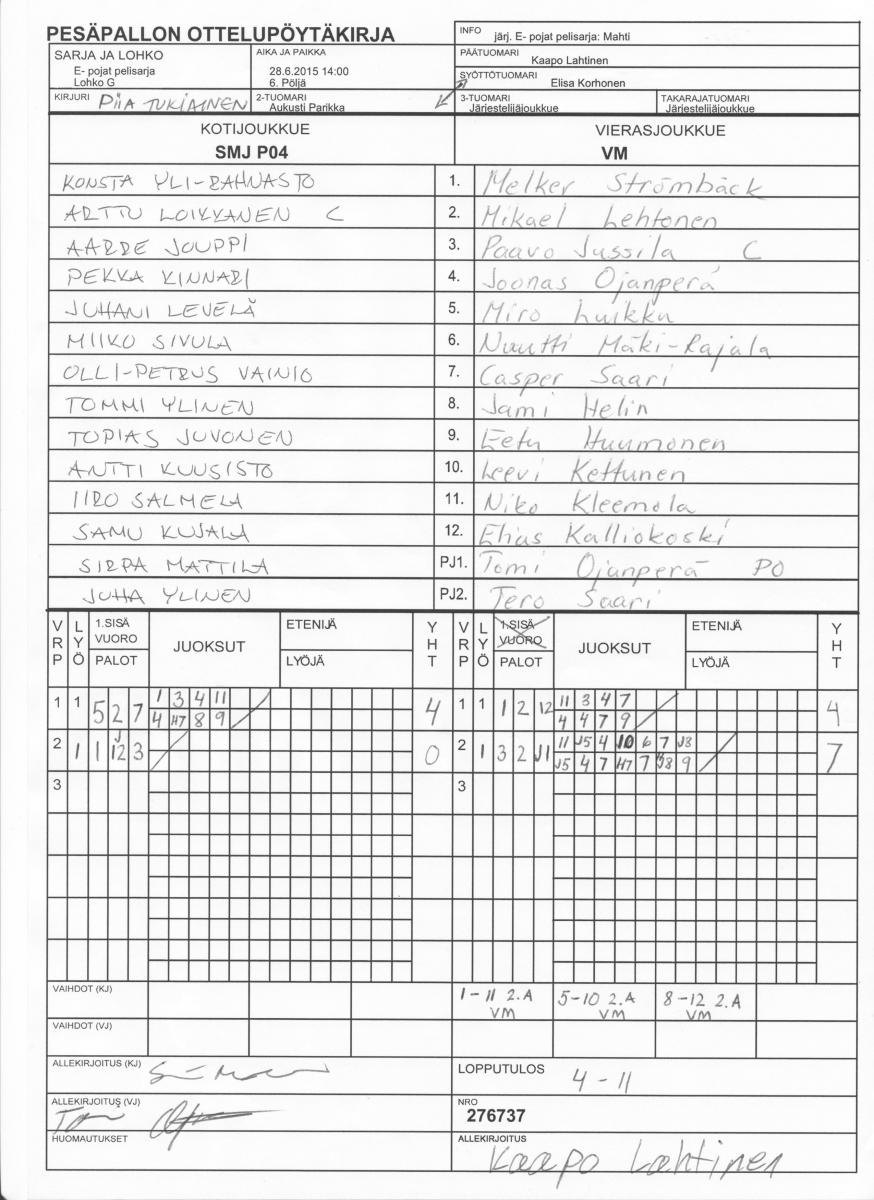 PESÄPALLON OTTELUPÖYTÄKIRJA
INFO järj. E- pojat pelisarja: Mahti
SARJA JA LOHKO
E- pojat pelisarja
Lohko G
AIKA JA PAIKKA
28.6.2015 14:00
6. Pöljä
PÄÄTUOMARI
Kaapo Lahtinen
SYÖTTÖTUOMARI
Elisa Korhonen
KIRJURI PIIA TUKIAINEN
2-TUOMARI
Aukusti Parikka
3-TUOMARI
Järjestelijäjoukkue
TAKARAJATUOMARI
Järjestelijäjoukkue
KOTIJOUKKUE VIERASJOUKKUE
SMJ P04 VM
KONSTA YLI-RAHNASTO 1. Melker Strömbäck
ARTTU LOIKKANEN C 2. Mikael Lehtonen
AARRE JOUPPI 3. Paavo Jussila C
PEKKA KINNARI 4. Joonas Ojanperä
JUHANI LEVELÄ 5. Miro Luikku
MIIKO SIVULA 6. Nuutti Mäki-Rajala
OLLI-PETRUS VAINIO 7. Casper Saari
TOMMI YLINEN 8. Jami Helin
TOPIAS JUVONEN 9. Eetu Huumonen
ANTTI KUUSISTO 10. Leevi Kettunen
IIRO SALMELA 11. Niko Kleemola
SAMU KUJALA 12. Elias Kalliokoski
SIRPA MATTILA PJ1. Tomi Ojanperä PO
JUHA YLINEN PJ2. Tero Saari
VRP LYÖ 1.SISÄ VUORO PALOT JUOKSUT ETENIJÄ LYÖJÄ YHT VRP LYÖ 1.SISÄ VUORO PALOT JUOKSUT ETENIJÄ LYÖJÄ YHT
1 1 5 2 7 1 3 4 11 4 1 1 1 2 12 11 3 4 7 4
4 H7 8 9 4 4 7 9
2 1 1 J12 3 0 2 1 3 2 J1 11 J5 4 10 6 7 J8 7
J5 4 7 H7 7 J8 9
3 3
VAIHDOT (KJ) 1-11 2.A VM 5-10 2.A VM 8-12 2.A VM
VAIHDOT (VJ)
ALLEKIRJOITUS (KJ)
LOPPUTULOS 4-11
ALLEKIRJOITUS (VJ)
NRO
276737
HUOMAUTUKSET
ALLEKIRJOITUS
Kaapo Lahtinen